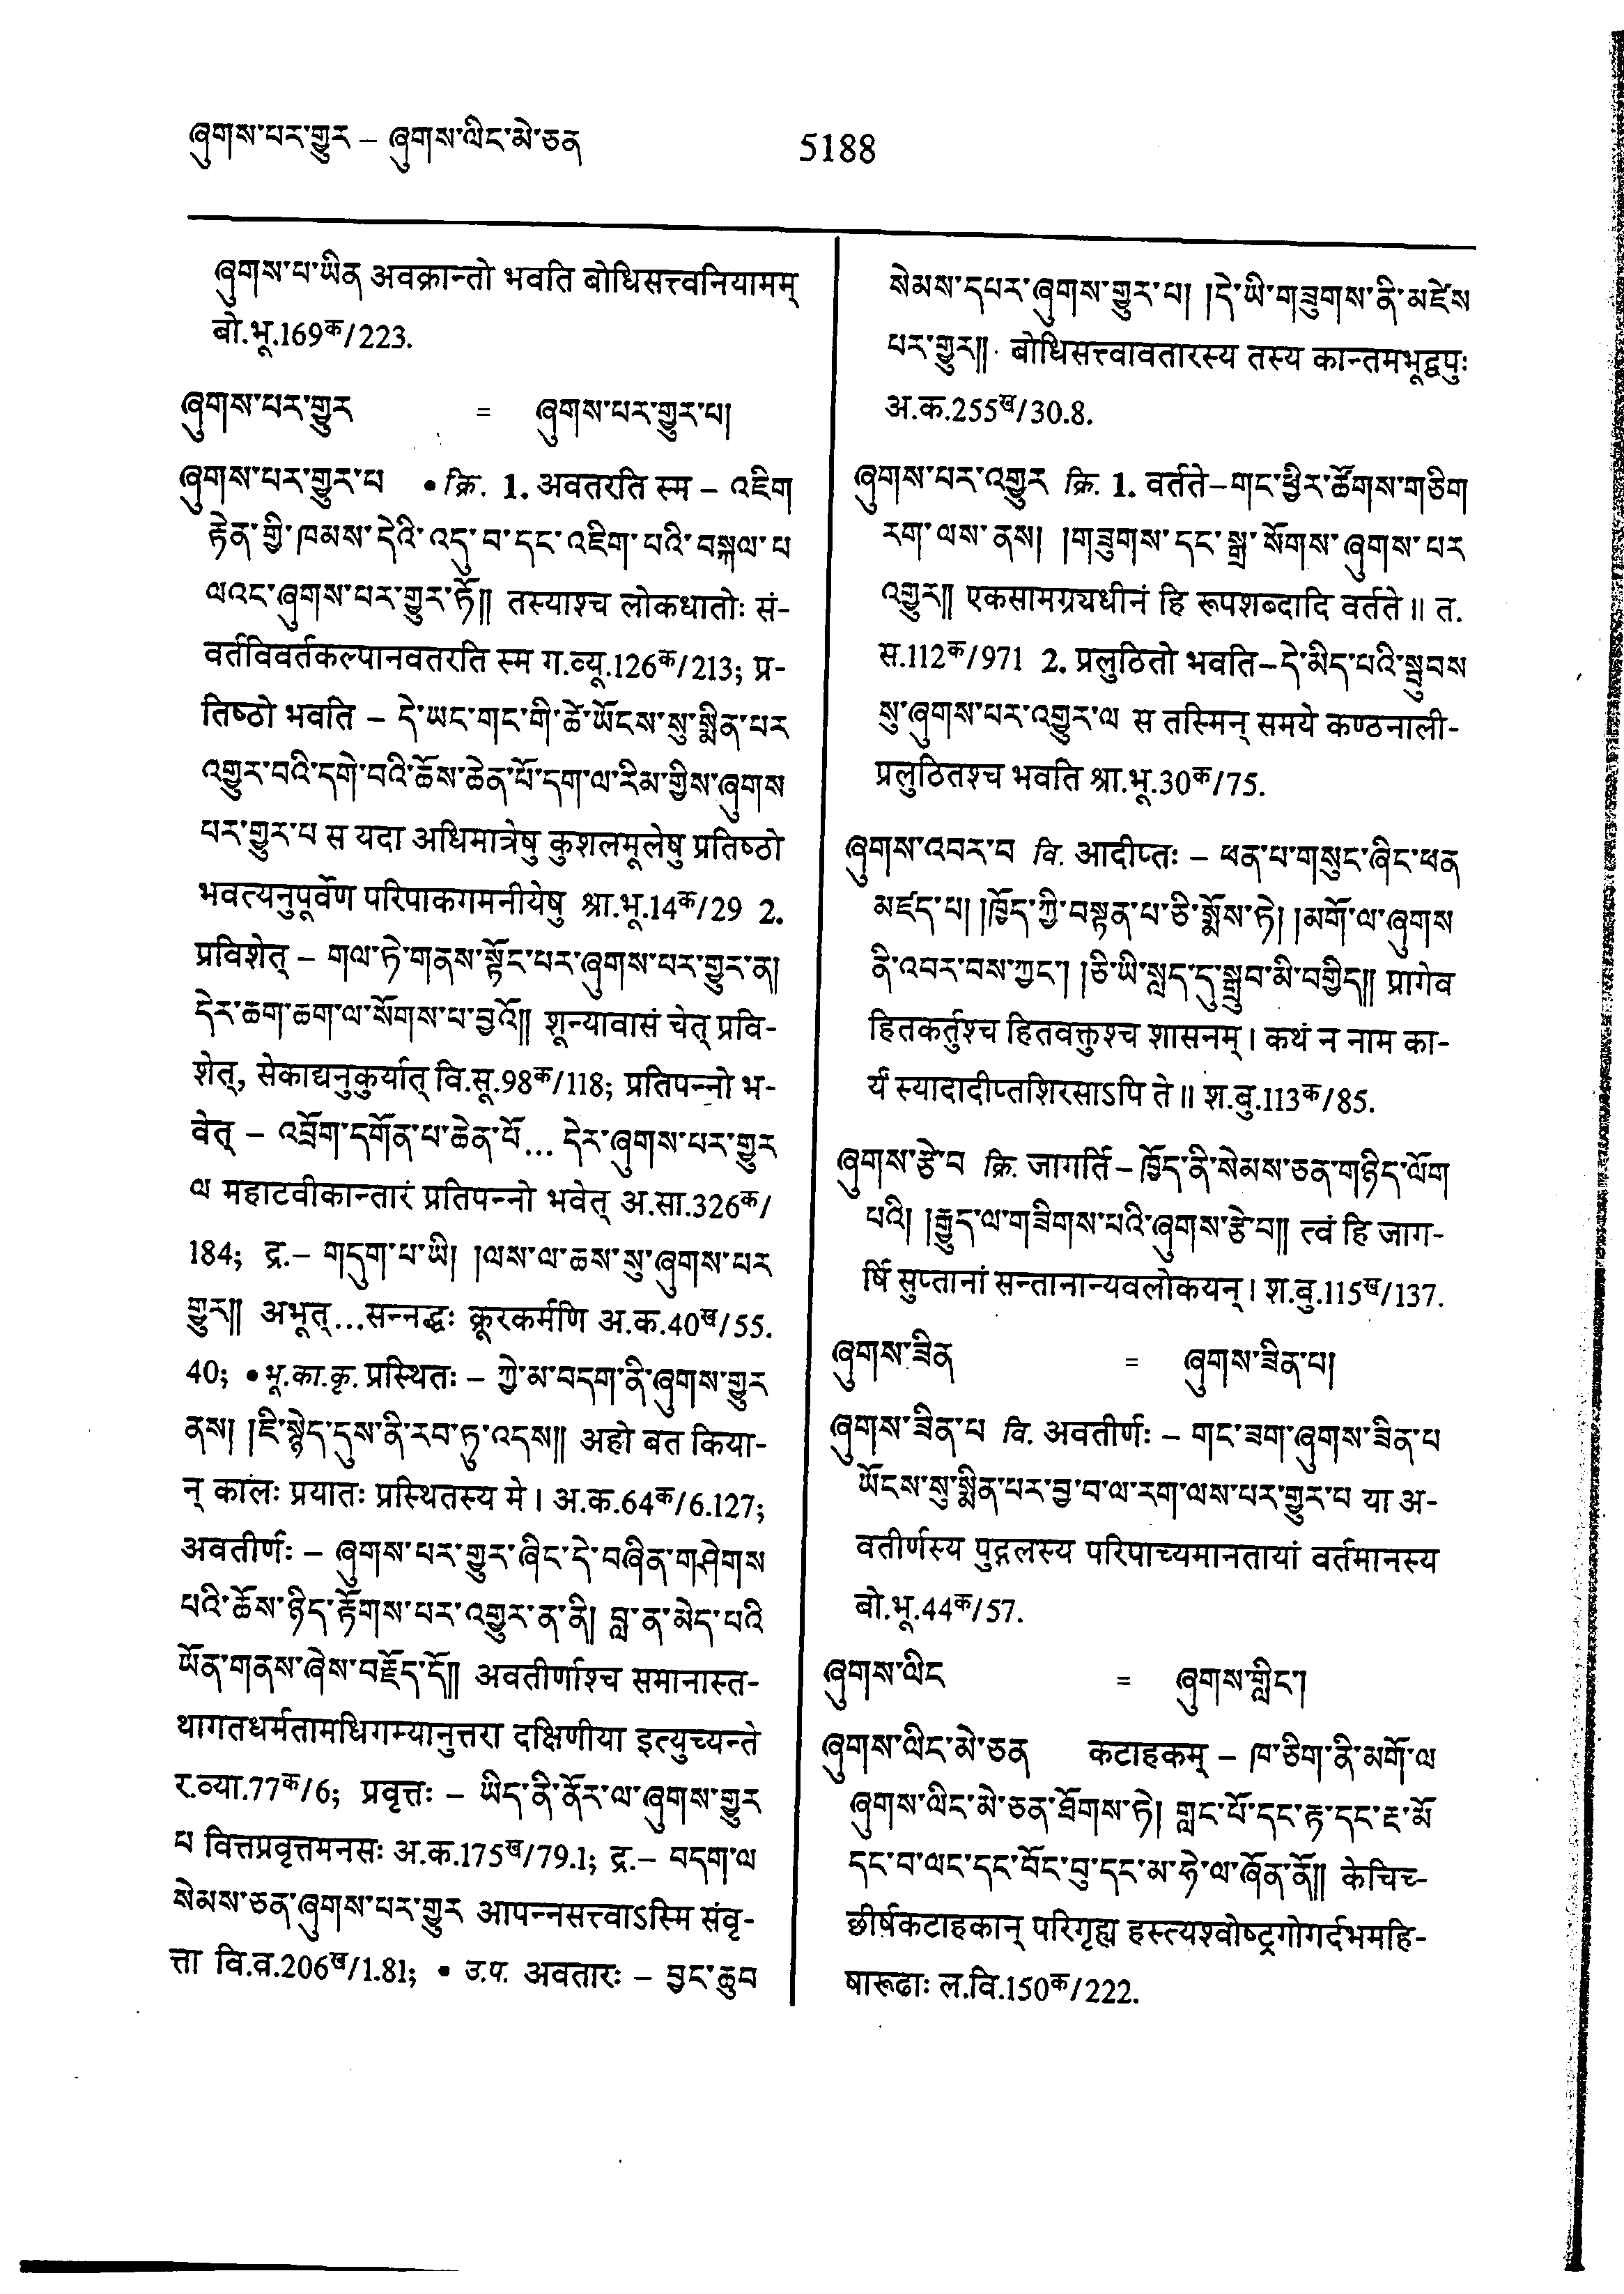 ཞུགས་པར་གྱུར – ཞུགས་ལིང་མེ་ཅན
5188
ཞུགས་པ་ཡིན अवक्रान्तो भवति बोधिसत्त्वनियामम्
बो.भू.169क/223.
ཞུགས་པར་གྱུར = ཞུགས་པར་གྱུར་པ།
ཞུགས་པར་གྱུར་པ • क्रि. 1. अवतरति स्म – འཇིག
རྟེན་གྱི་ཁམས་དེའི་འདུ་བ་དང་འཇིག་པའི་བསྐལ་པ
ལའང་ཞུགས་པར་གྱུར་ཏོ༎ तस्याश्च लोकधातोः सं-
वर्तविवर्तकल्पानवतरति स्म ग.व्यू.126क/213; प्र-
तिष्ठो भवति – དེ་ཡང་གང་གི་ཚེ་ཡོངས་སུ་སྨིན་པར
འགྱུར་བའི་དགེ་བའི་ཆོས་ཆེན་པོ་དག་ལ་རིམ་གྱིས་ཞུགས
པར་གྱུར་པ स यदा अधिमात्रेषु कुशलमूलेषु प्रतिष्ठो
भवत्यनुपूर्वेण परिपाकगमनीयेषु श्रा.भू.14क/29 2.
प्रविशेत् – གལ་ཏེ་གནས་སྟོང་པར་ཞུགས་པར་གྱུར་ན།
དེར་ཆག་ཆག་ལ་སོགས་པ་བྱའོ༎ शून्यावासं चेत् प्रवि-
शेत्, सेकाद्यनुकुर्यात् वि.सू.98क/118; प्रतिपन्नो भ-
वेत् – འབྲོག་དགོན་པ་ཆེན་པོ... དེར་ཞུགས་པར་གྱུར
ལ महाटवीकान्तारं प्रतिपन्नो भवेत् अ.सा.326क/
184; द्र.– གདུག་པ་ཡི། །ལས་ལ་ཆས་སུ་ཞུགས་པར
གྱུར༎ अभूत्...सन्नद्धः क्रूरकर्मणि अ.क.40ख/55.
40; • भू.का.कृ. प्रस्थितः – ཀྱེ་མ་བདག་ནི་ཞུགས་གྱུར
ནས། །ཇི་སྙེད་དུས་ནི་རབ་ཏུ་འདས༎ अहो बत किया-
न् कालः प्रयातः प्रस्थितस्य मे । अ.क.64क/6.127;
अवतीर्णः – ཞུགས་པར་གྱུར་ཞིང་དེ་བཞིན་གཤེགས
པའི་ཆོས་ཉིད་རྟོགས་པར་འགྱུར་ན་ནི། བླ་ན་མེད་པའི
ཡོན་གནས་ཞེས་བརྗོད་དོ༎ अवतीर्णाश्च समानास्त-
थागतधर्मतामधिगम्यानुत्तरा दक्षिणीया इत्युच्यन्ते
र.व्या.77क/6; प्रवृत्तः – ཡིད་ནི་ནོར་ལ་ཞུགས་གྱུར
པ वित्तप्रवृत्तमनसः अ.क.175ख/79.1; द्र.– བདག་ལ
སེམས་ཅན་ཞུགས་པར་གྱུར आपन्नसत्त्वाऽस्मि संवृ-
त्ता वि.व.206ख/1.81; • उ.प. अवतारः – བྱང་ཆུབ
སེམས་དཔར་ཞུགས་གྱུར་པ། །དེ་ཡི་གཟུགས་ནི་མཛེས
པར་གྱུར༎ बोधिसत्त्वावतारस्य तस्य कान्तमभूद्वपुः
अ.क.255ख/30.8.
ཞུགས་པར་འགྱུར क्रि. 1. वर्तते–གང་ཕྱིར་ཚོགས་གཅིག
རག་ལས་ནས། །གཟུགས་དང་སྒྲ་སོགས་ཞུགས་པར
འགྱུར༎ एकसामग्र्यधीनं हि रूपशब्दादि वर्तते ॥ त.
स.112क/971 2. प्रलुठितो भवति–དེ་མིད་པའི་སྦུབས
སུ་ཞུགས་པར་འགྱུར་ལ स तस्मिन् समये कण्ठनाली-
प्रलुठितश्च भवति श्रा.भू.30क/75.
ཞུགས་འབར་བ वि. आदीप्तः – ཕན་པ་གསུང་ཞིང་ཕན
མཛད་པ། །ཁྱོད་ཀྱི་བསྟན་པ་ཅི་སྨོས་ཏེ། །མགོ་ལ་ཞུགས
ནི་འབར་བས་ཀྱང་། །ཅི་ཡི་སླད་དུ་སྒྲུབ་མི་བགྱིད༎ प्रागेव
हितकर्तुश्च हितवक्तुश्च शासनम् । कथं न नाम का-
र्यं स्यादादीप्तशिरसाऽपि ते ॥ श.बु.113क/85.
ཞུགས་རྩེ་བ क्रि. जागर्ति – ཁྱོད་ནི་སེམས་ཅན་གཉིད་ལོག
པའི། །རྒྱུད་ལ་གཟིགས་པའི་ཞུགས་རྩེ་བ༎ त्वं हि जाग-
र्षि सुप्तानां सन्तानान्यवलोकयन् । श.बु.115ख/137.
ཞུགས་ཟིན = ཞུགས་ཟིན་པ།
ཞུགས་ཟིན་པ वि. अवतीर्णः – གང་ཟག་ཞུགས་ཟིན་པ
ཡོངས་སུ་སྨིན་པར་བྱ་བ་ལ་རག་ལས་པར་གྱུར་པ या अ-
वतीर्णस्य पुद्गलस्य परिपाच्यमानतायां वर्तमानस्य
बो.भू.44क/57.
ཞུགས་ལིང = ཞུགས་གླིང་།
ཞུགས་ལིང་མེ་ཅན कटाहकम् – ཁ་ཅིག་ནི་མགོ་ལ
ཞུགས་ལིང་མེ་ཅན་ཐོགས་ཏེ། གླང་པོ་དང་རྟ་དང་རྔ་མོ
དང་བ་ལང་དང་བོང་བུ་དང་མ་ཧེ་ལ་ཞོན་ནོ༎ केचिच्-
छीर्षकटाहकान् परिगृह्य हस्त्यश्वोष्ट्रगोगर्दभमहि-
षारूढाः ल.वि.150क/222.